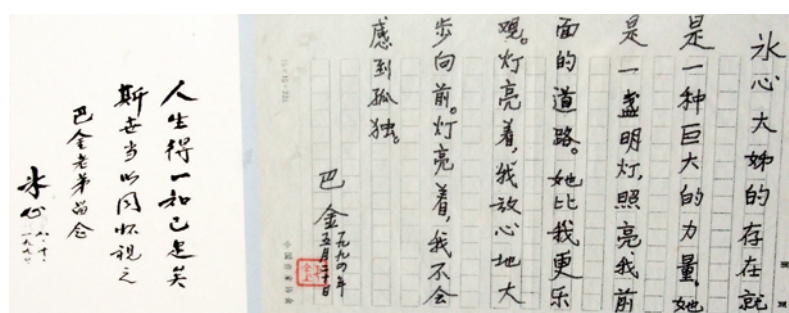 冰心大姊的存在就
是一种巨大的力量。她
是一盏明灯,照亮我前
面的道路。她比我更乐
观。灯亮着,我放心地大
步向前。灯亮着,我不会
感到孤独。
巴金
一九九四年
五月二十日
中国作家协会
人生得一知己足矣
斯世当以同怀视之
巴金老弟留念
冰心